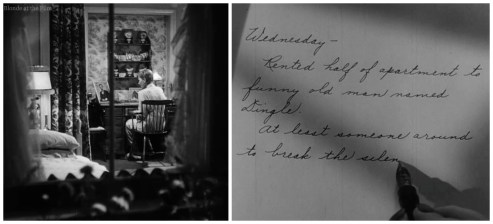 Blonde at the Film
Wednesday—
Rented half of apartment to
funny old man named
Dingle.
At least someone around
to break the silen